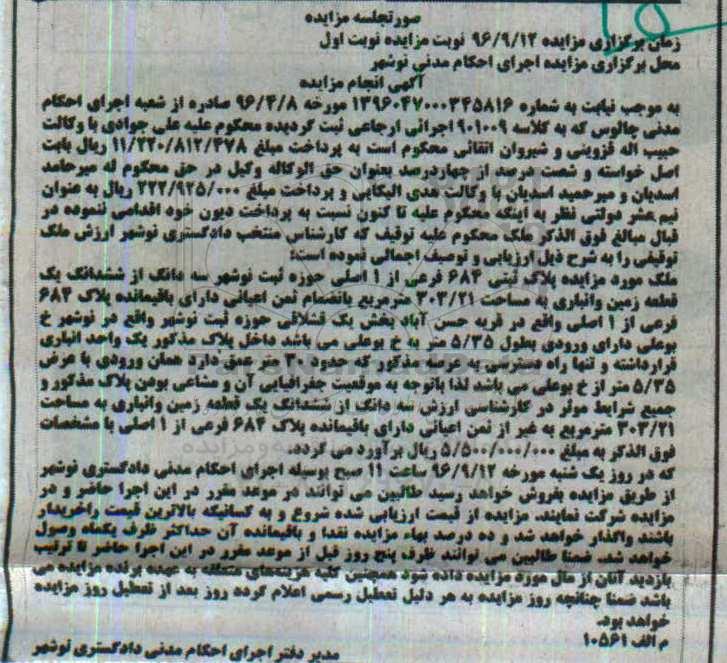 صورتجلسه مزایده
زمان برگزاری مزایده ۹۶/۹/۱۲ نوبت مزایده نوبت اول
محل برگزاری مزایده اجرای احکام مدنی نوشهر
آگهی انجام مزایده
به موجب نیابت به شماره ۱۳۹۶۰۴۷۰۰۰۳۴۵۸۱۶ مورخه ۹۶/۴/۸ صادره از شعبه اجرای احکام
مدنی چالوس که به کلاسه ۹۰۱۰۰۹ اجرائی ارجاعی ثبت گردیده محکوم علیه علی جوادی با وکالت
حبیب اله قزوینی و شیروان اتقائی محکوم است به پرداخت مبلغ ۱۱/۲۲۰/۸۱۲/۴۷۸ ریال بابت
اصل خواسته و شصت درصد از چهاردرصد بعنوان حق الوکاله وکیل در حق محکوم له میرحامد
اسدیان و میرحمید اسدیان با وکالت هدی الیکایی و پرداخت مبلغ ۲۲۲/۹۲۵/۰۰۰ ریال به عنوان
نیم عشر دولتی نظر به اینکه محکوم علیه تا کنون نسبت به پرداخت دیون خود اقدامی ننموده در
قبال مبالغ فوق الذکر ملک محکوم علیه توقیف که کارشناس منتخب دادگستری نوشهر ارزش ملک
توقیفی را به شرح ذیل ارزیابی و توصیف اجمالی نموده است:
ملک مورد مزایده پلاک ثبتی ۶۸۴ فرعی از ۱ اصلی حوزه ثبت نوشهر سه دانگ از ششدانگ یک
قطعه زمین وانباری به مساحت ۳۰۳/۲۱ مترمربع بانضمام ثمن اعیانی دارای باقیمانده پلاک ۶۸۴
فرعی از ۱ اصلی واقع در قریه حسن آباد بخش یک قشلاقی حوزه ثبت نوشهر واقع در نوشهر خ
بوعلی دارای ورودی بطول ۵/۳۵ متر به خ بوعلی می باشد داخل پلاک مذکور یک واحد انباری
قرارداشته و تنها راه دسترسی به عرصه مذکور که حدود ۳۰ متر عمق دارد همان ورودی با عرض
۵/۳۵ متر از خ بوعلی می باشد لذا باتوجه به موقعیت جغرافیایی آن و مشاعی بودن پلاک مذکور و
جمیع شرایط موثر در کارشناسی ارزش سه دانگ از ششدانگ یک قطعه زمین وانباری به مساحت
۳۰۳/۲۱ مترمربع به غیر از ثمن اعیانی دارای باقیمانده پلاک ۶۸۴ فرعی از ۱ اصلی با مشخصات
فوق الذکر به مبلغ ۵/۵۰۰/۰۰۰/۰۰۰ ریال برآورد می گردد.
که در روز یک شنبه مورخه ۹۶/۹/۱۲ ساعت ۱۱ صبح بوسیله اجرای احکام مدنی دادگستری نوشهر
از طریق مزایده بفروش خواهد رسید طالبین می توانند در موعد مقرر در این اجرا حاضر و در
مزایده شرکت نمایند. مزایده از قیمت ارزیابی شده شروع و به کسانیکه بالاترین قیمت راخریدار
باشند واگذار خواهد شد و ده درصد بهاء مزایده نقدا و باقیمانده آن حداکثر ظرف یکماه وصول
خواهد شد. ضمنا طالبین می توانند ظرف پنج روز قبل از موعد مقرر در این اجرا حاضر تا ترتیب
بازدید آنان از مال مورد مزایده داده شود همچنین کلیه هزینه‌های متعلقه به عهده برنده مزایده می
باشد ضمنا چنانچه روز مزایده به هر دلیل تعطیل رسمی اعلام گرده روز بعد از تعطیل روز مزایده
خواهد بود.
م الف ۱۰۵۶۱
مدیر دفتر اجرای احکام مدنی دادگستری نوشهر